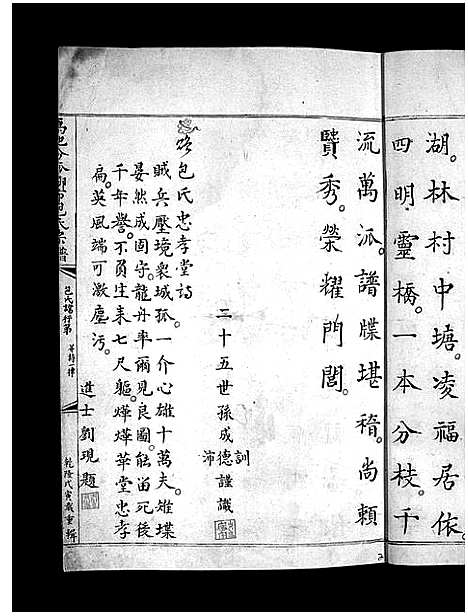 湖。林村中塘。凌福居依。
四明靈橋。一本分枝。千
流萬派。譜牒堪稽。尚賴
賢秀。榮耀門閭。
二十五世孫成德訓沛謹識
包氏忠孝堂詩
賊兵壓境衆城孤。一介心雄十萬夫。雉堞
晏然成固守。龍丹率爾見良圖。能留死後
千年譽。不負生来七尺軀。燁燁華堂忠孝
扁。英風端可激塵污。
進士劉現題
包氏譜行第
乾隆戊寅歲重輯